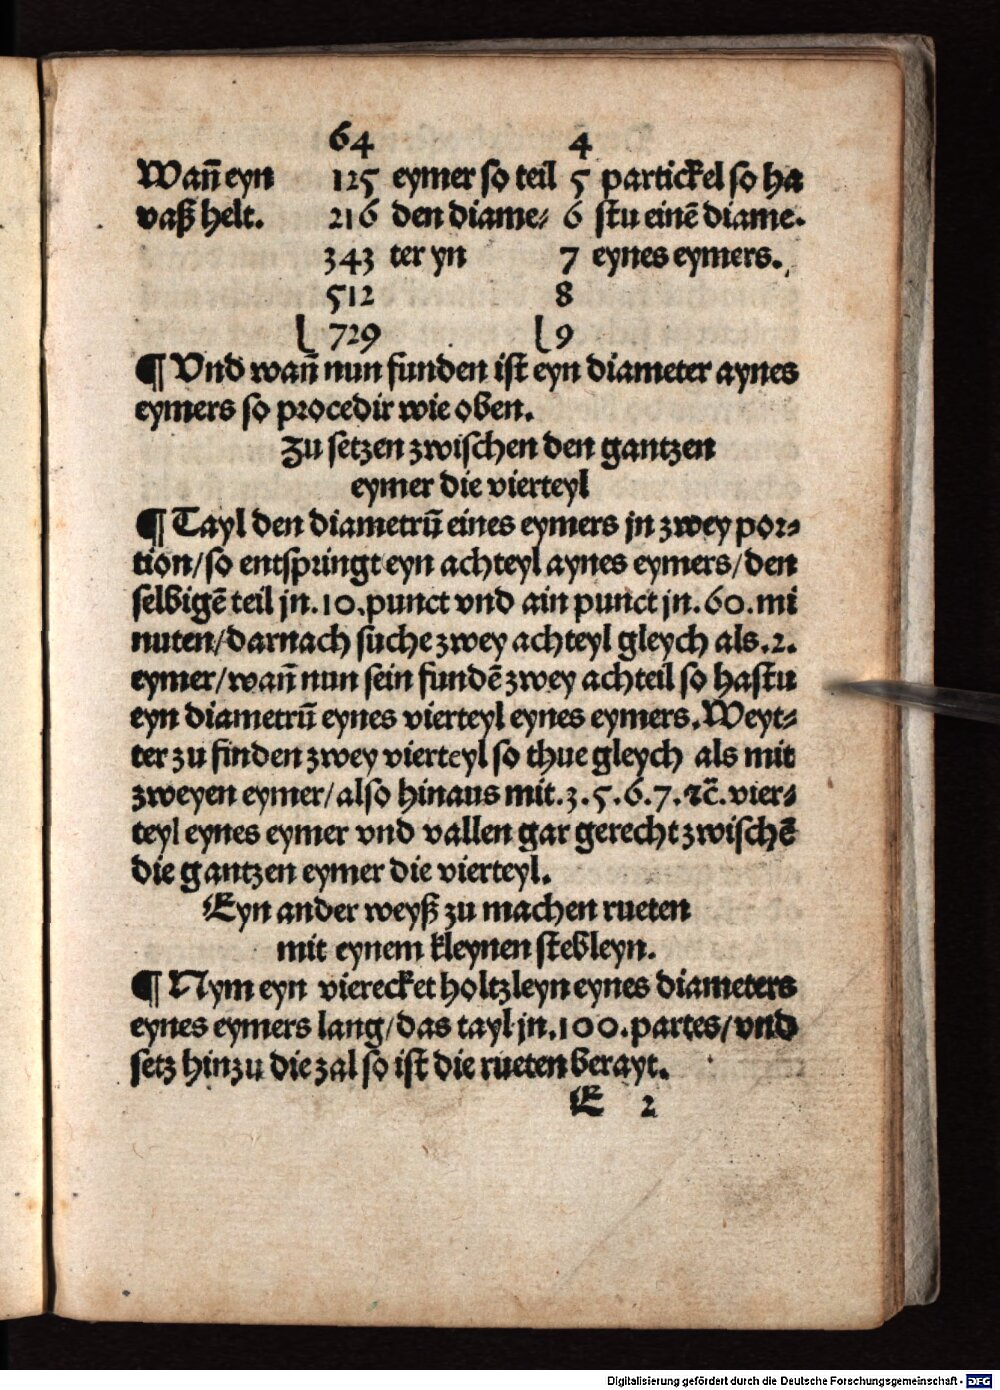 64 4
Wañ eyn 125 eymer so teil 5 partickel so ha
vaß helt. 216 den diame⸗ 6 stu einē diame.
343 ter yn 7 eynes eymers.
512 8
729 9
¶ Vnd wañ nun funden ist eyn diameter aynes
eymers so procedir wie oben.
Zu setzen zwischen den gantzen
eymer die vierteyl
¶ Tayl den diametrū eines eymers jn zwey por⸗
tion/so entspringt eyn achteyl aynes eymers/den
selbigē teil jn.10.punct vnd ain punct jn.60.mi
nuten/darnach suche zwey achteyl gleych als.2.
eymer/wañ nun sein fundē zwey achteil so hastu
eyn diametrū eynes vierteyl eynes eymers.Weyt⸗
ter zu finden zwey vierteyl so thue gleych als mit
zweyen eymer/also hinaus mit.3.5.6.7.⁊c̄.vier⸗
teyl eynes eymer vnd vallen gar gerecht zwischē
die gantzen eymer die vierteyl.
Eyn ander weyß zu machen rueten
mit eynem kleynen stebleyn.
¶ Nym eyn vierecket holtzleyn eynes diameters
eynes eymers lang/das tayl jn.100.partes/vnd
setz hinzu die zal so ist die rueten berayt.
E 2
Digitalisierung gefördert durch die Deutsche Forschungsgemeinschaft - DFG